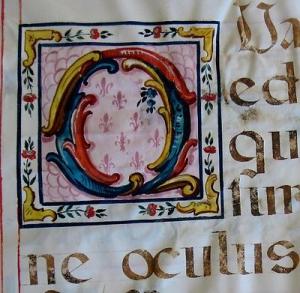 O Va
ed
qu
tur
ne oculus